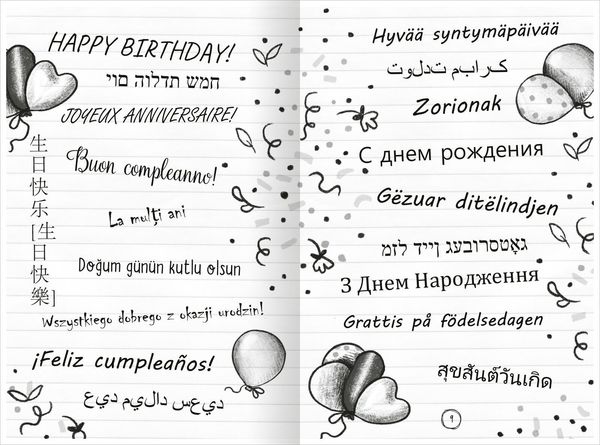 HAPPY BIRTHDAY!
יום הולדת שמח
JOYEUX ANNIVERSAIRE!
Buon compleanno!
生日快乐[生日快樂]
La mulți ani
Doğum günün kutlu olsun
Wszystkiego dobrego z okazji urodzin!
¡Feliz cumpleaños!
عيد ميلاد سعيد
Hyvää syntymäpäivää
تولدت مبارک
Zorionak
С днем рождения
Gëzuar ditëlindjen
גאָטסרובעג דייד לזמ
З Днем Народження
Grattis på födelsedagen
สุขสันต์วันเกิด
9